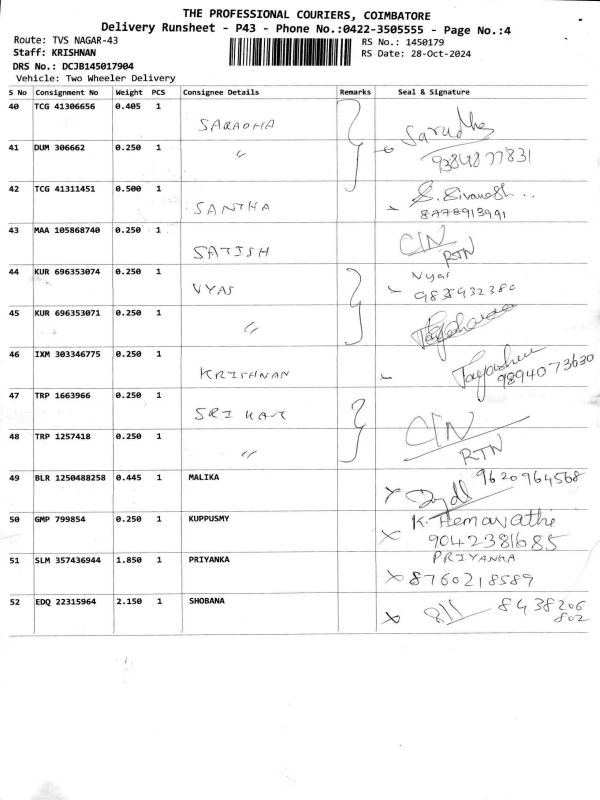 THE PROFESSIONAL COURIERS, COIMBATORE
Delivery Runsheet - P43 - Phone No.:0422-3505555 - Page No.:4
Route: TVS NAGAR-43
RS No.: 1450179
Staff: KRISHNAN
RS Date: 28-Oct-2024
DRS No.: DCJB145017904
Vehicle: Two Wheeler Delivery
S No Consignment No Weight PCS Consignee Details Remarks Seal & Signature
40 TCG 41306656 0.405 1 SARADHA
Saradha
41 DUM 306662 0.250 1 "
9384877831
42 TCG 41311451 0.500 1 SANTHA
S. Sivanesh
8778913991
43 MAA 105868740 0.250 1 SATISH CIN
RTN
44 KUR 696353074 0.250 1 VYAS Vyas
45 KUR 696353071 0.250 1 "
46 IXM 303346775 0.250 1 KRISHNAN
9894073630
47 TRP 1663966 0.250 1 SRI KAR CIN
48 TRP 1257418 0.250 1 " RTN
49 BLR 1250488258 0.445 1 MALIKA 9620964568
50 GMP 799854 0.250 1 KUPPUSMY K. Hemavathi
9042381685
51 SLM 357436944 1.850 1 PRIYANKA PRIYANKA
8760218589
52 EDQ 22315964 2.150 1 SHOBANA 8438206
802